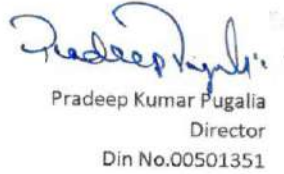 Pradeep Pugalia
Pradeep Kumar Pugalia
Director
Din No.00501351